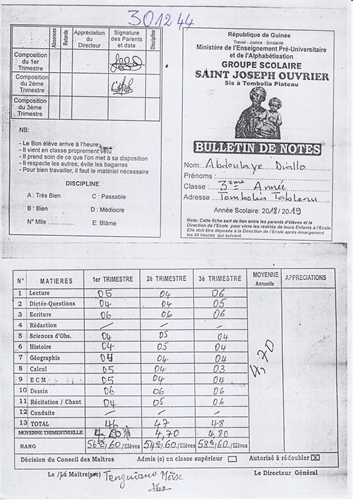 301244
Absences
Retards
Appréciation du Directeur
Signature des Parents et date
Discipline
Composition du 1er Trimestre
Composition du 2ème Trimestre
Composition du 3ème Trimestre
NB:
- Le Bon élève arrive à l'heure
- Il vient en classe proprement vêtu
- Il prend soin de ce que l'on met à sa disposition
- Il respecte les autres, évite les bagarres
- Pour bien travailler, il faut le matériel nécessaire
DISCIPLINE
A : Très Bien C : Passable
B : Bien D : Médiocre
N° Mlle E: Blâme
République de Guinée
Travail - Justice - Solidarité
Ministère de l'Enseignement Pré-Universitaire
et de l'Alphabétisation
GROUPE SCOLAIRE
SAINT JOSEPH OUVRIER
Sis à Tombolia Plateau
BULLETIN DE NOTES
Nom: Abdoulaye Diallo
Prénoms :
Classe : 3ème Année
Adresse Tombolia
Année Scolaire: 2018/2019
Cette fiche sert de lien entre les parents d'élèves et la
Direction de l'Ecole pour vivre les réalités de leurs Enfants à l'Ecole
Elle doit être déposée à la Direction de l'Ecole après émargement
les 24 heures qui suivent
N° MATIERES 1er TRIMESTRE 2è TRIMESTRE 3è TRIMESTRE MOYENNE Annuelle APPRECIATIONS
1 Lecture 05 04 06
2 Dictée-Questions 04 04 05
3 Ecriture 06 06 06
4 Rédaction
5 Sciences d'Obs. 04 05 04
6 Histoire 04 05 04
7 Géographie 04 04
8 Calcul 05 04 03
9 ECM 05 05 05
10 Dessin 06 06
11 Récitation / Chant 04 05 06
12 Conduite
13 TOTAL 46 47 48
MOYENNE TRIMESTRIELLE 4,60 4,70 4,80
RANG /60/Elèves 54è/60/Elèves /60/Elèves
Décision du Conseil des Maîtres Admis (e) en classe supérieur Autorisé à redoubler
Le Maître Tenguiano Moïse Le Directeur Général